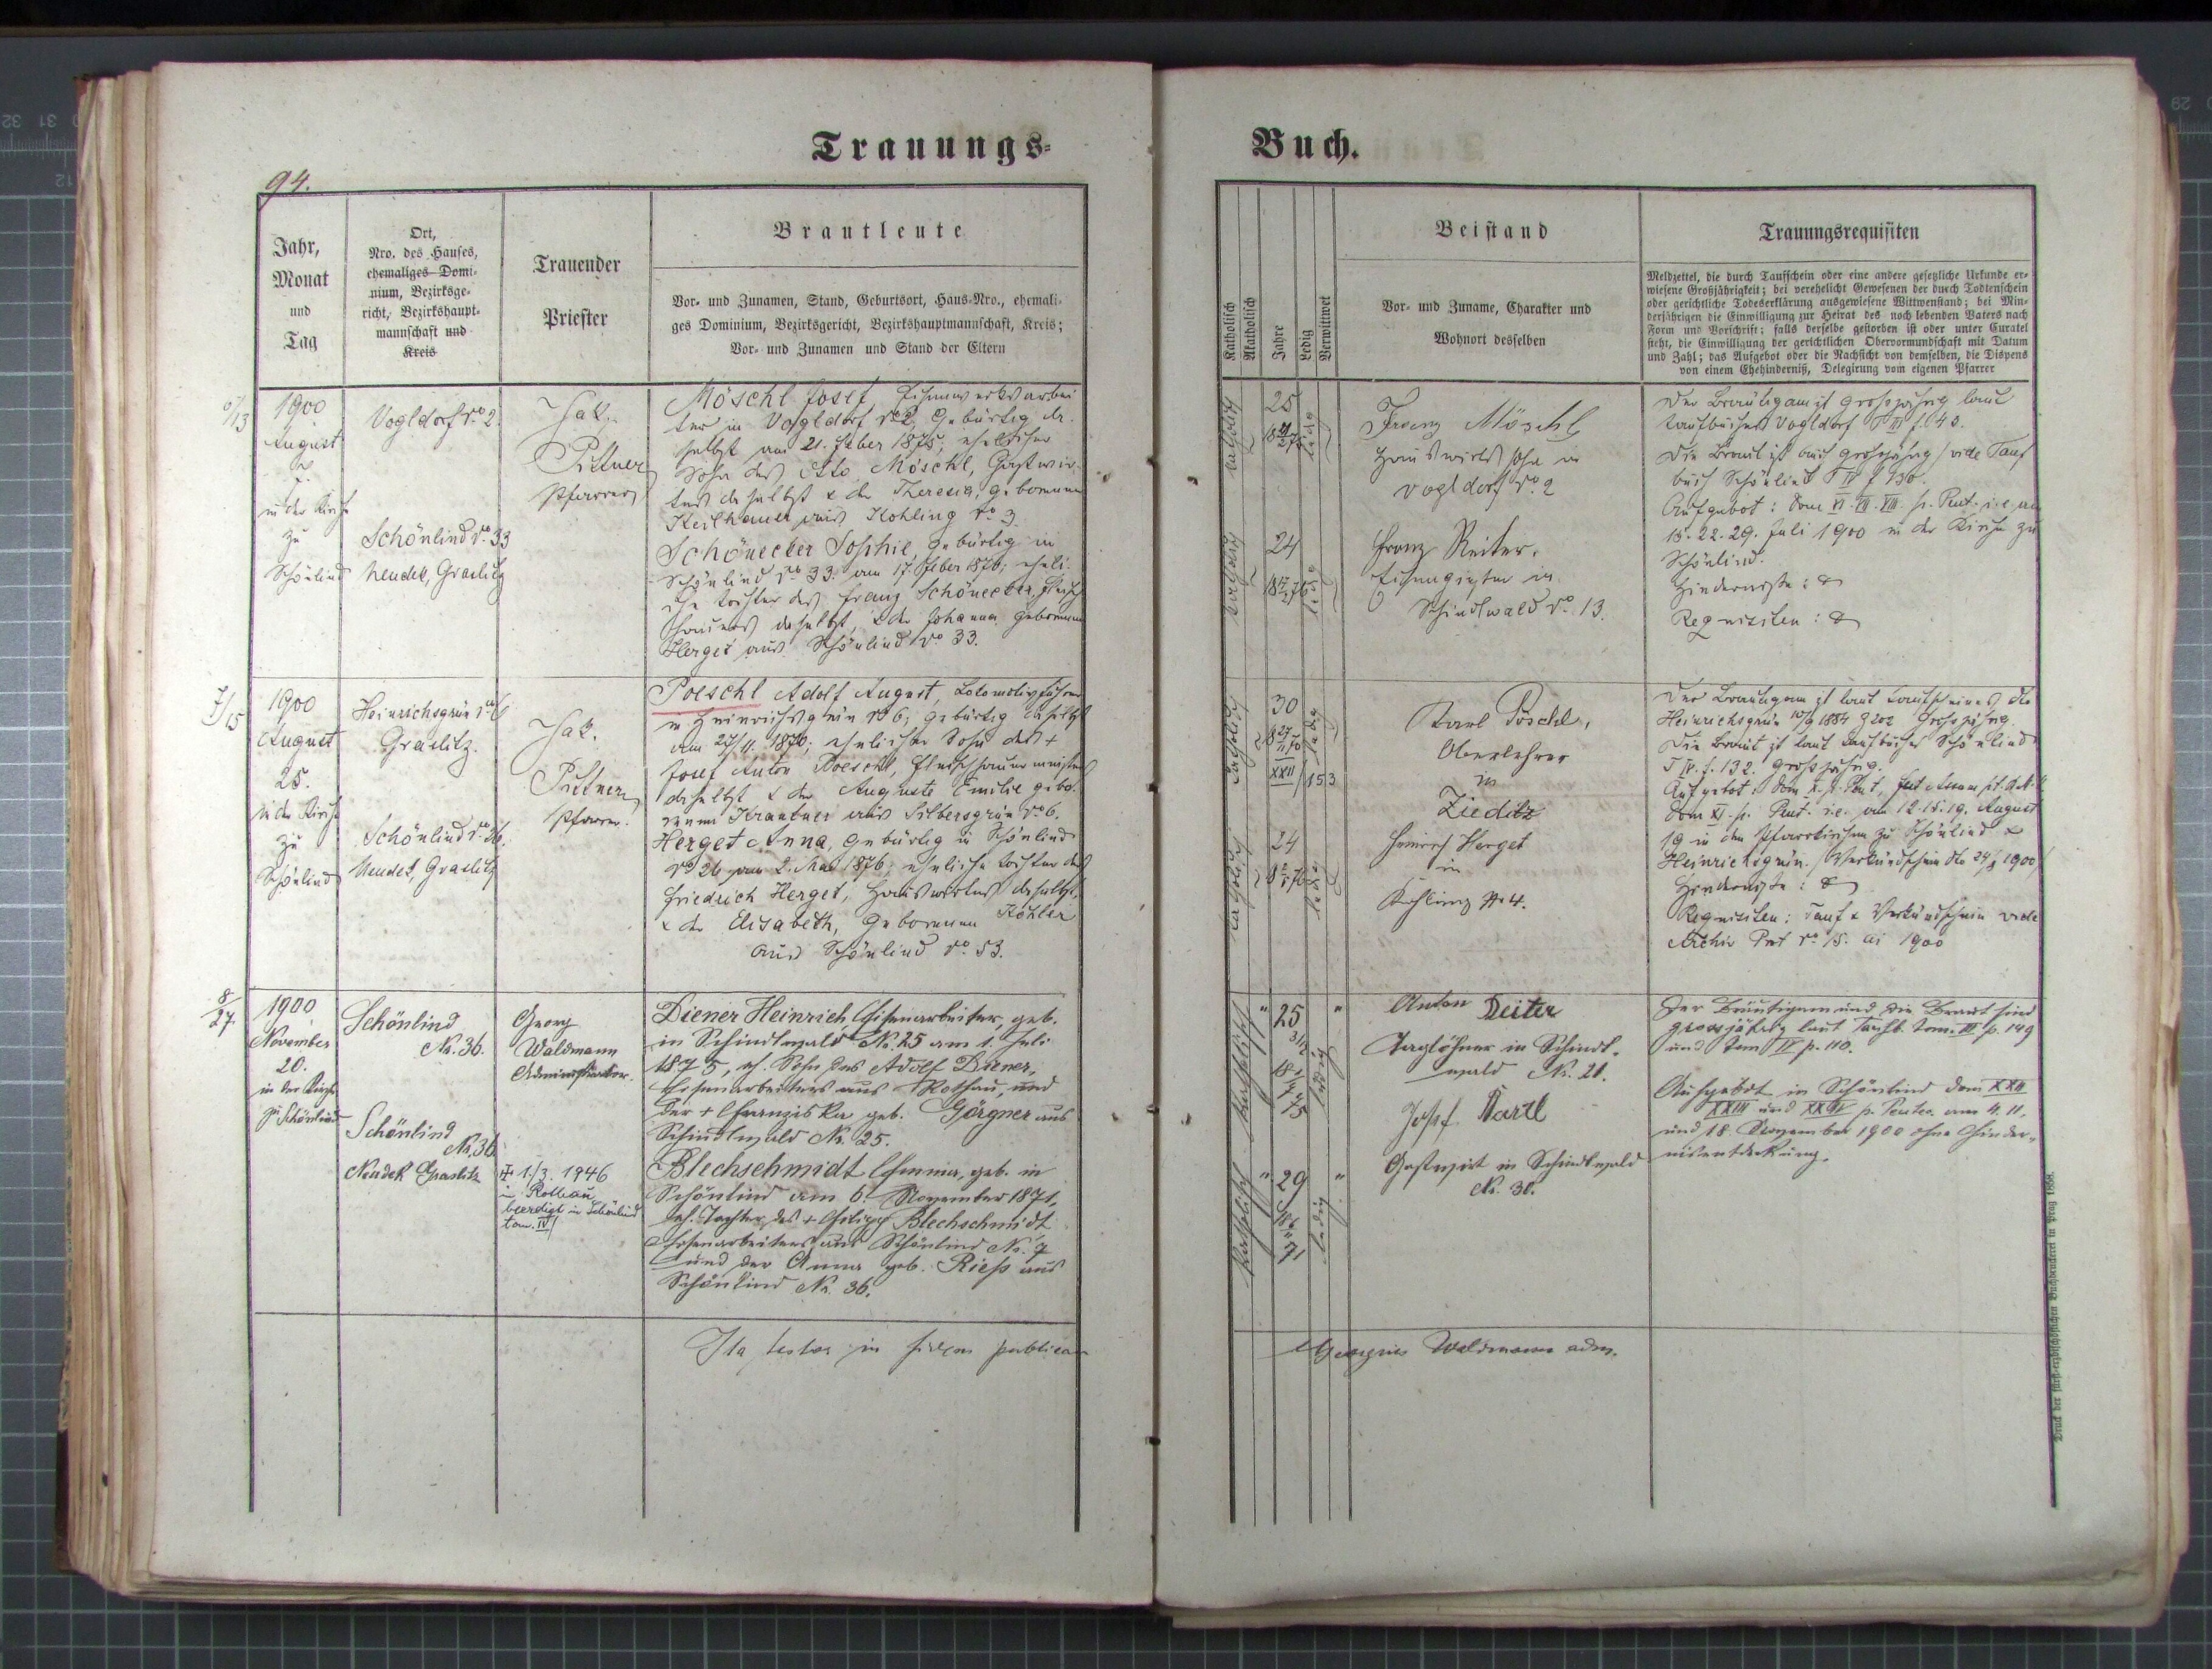 Trauungs-
94.
Jahr,
Monat
und
Tag
Ort,
Nro. des Hauses,
ehemaliges Domi-
nium, Bezirksge-
richt, Bezirkshaupt-
mannschaft und
Kreis
Trauender
Priester
Brautleute
Vor- und Zunamen, Stand, Geburtsort, Haus-Nro., ehemali-
ges Dominium, Bezirksgericht, Bezirkshauptmannschaft, Kreis;
Vor- und Zunamen und Stand der Eltern
6/13
1900
August
7.
in der Kirche
zu
Schönlind
Vogldorf No 2.
Schönlind No. 33
Neudek, Graslitz
Jak.
Pittner
Pfarrer
Möschl Josef,
ter in Vogldorf No 2, Gebürtig da-
selbst am 21. 1875; ehelicher
Sohn des Möschl, Gastwir-
tes daselbst & der Theresia, gebornen
Keilhauer aus Kohling No 3.
Schönecker Sophie, gebürtig in
Schönlind No 33. am 17. feber 1876; eheli-
che Tochter des Franz Schönecker, Fleisch
hauers daselbst, & der Johanna gebornen
Herget aus Schönlind No 33.
7/15
1900
August
25.
in der Kirche
zu
Schönlind
Heinrichsgrün No 6
Graslitz.
Schönlind No 26.
Neudek, Graslitz
Jak.
Pittner
Pfarrer.
Poeschl Adolf August, Lokomotivführer
in Heinrichsgrün No 6; gebürtig daselbst
am 27/11. 1870; ehelicher Sohn des +
Josef Anton Poeschl, Fleischhauermeisters
daselbst & der Auguste Emilie gebo-
renen Krautner aus Silbersgrün No 6.
Herget Anna, gebürtig in Schönlind
No 26 am 2. Mai 1876; eheliche Tochter des
Friedrich Herget, Hauswirtes daselbst,
& der Elisabeth, Gebornen Köhler
aus Schönlind No. 53.
8/27
1900
November
20.
in der Kirche
zu Schönlind
Schönlind
No. 36.
Schönlind
No. 36
Neudek Graslitz
Georg
Waldmann
Administrator.
+ 1./3. 1946
in Rothau
beerdigt in Schönlind
tom. IV/
Diener Heinrich, Eisenarbeiter, geb.
in Schindlwald No. 25 am 1. Juli
1875, eh. Sohn des Adolf Diener,
Eisenarbeiters aus Rothau, und
der + Franziska geb. Görgner aus
Schindlwald No. 25.
Blechschmidt Emma, geb. in
Schönlind am 6. November 1871,
eh. Tochter des + Philipp Blechschmidt
Eisenarbeiters aus Schönlind No. 7
und der Anna geb. Rieß aus
Schönlind No. 36.
Ita testor in fidem publicam
Buch.
Katholisch
Akatholisch
Jahre
Ledig
Verwittwet
Beistand
Vor- und Zuname, Charakter und
Wohnort desselben
Trauungsrequisiten
Meldzettel, die durch Taufschein oder eine andere gesetzliche Urkunde er-
wiesene Großjährigkeit; bei verehelicht Gewesenen der durch Todtenschein
oder gerichtliche Todeserklärung ausgewiesene Wittwenstand; bei Min-
derjährigen die Einwilligung zur Heirat des noch lebenden Vaters nach
Form und Vorschrift; falls derselbe gestorben ist oder unter Curatel
steht, die Einwilligung der gerichtlichen Obervormundschaft mit Datum
und Zahl; das Aufgebot oder die Nachsicht von demselben, die Dispens
von einem Ehehinderniß, Delegirung vom eigenen Pfarrer
katholisch
25
ledig
Franz Möschl
Hauswirts Sohn in
Vogldorf No. 2
Der Bräutigam ist großjährig laut
Taufbuches Vogldorf T III f. 40.
Die Braut ist auch großjährig / vide Tauf
buch Schönlind T IV f. 130.
Aufgebot: Dom VI. VII. VIII. p. Pent. i.e. am
15. 22. 29. Juli 1900 in der Kirche zu
Schönlind.
Hindernisse:
Requisiten:
katholisch
24
ledig
Franz Reiter,
Eisengießer in
Schindlwald No. 13.
katholisch
30
ledig
XXII/153
Karl Pöschl,
Oberlehrer
in
Zieditz
Der Bräutigam ist laut Taufscheines dto
Heinrichsgrün 10/9 1884 Z 202 großjährig.
Die Braut ist laut Taufbuches Schönlind
T IV. f. 132. großjährig.
Aufgebot: Dom X. p. Pent, fest Assumpt.
Dom XI. p. Pent. i.e. am 12. 15. 19. August
19 in den Pfarrkirchen zu Schönlind &
Heinrichsgrün. / Verkündschein dto 24/8 1900/
Hindernisse:
Requisiten: Tauf & Verkündschein vide
Archiv No 15. ai 1900
katholisch
24
ledig
Heinrich Herget
in
Kohling No 4.
katholisch
25
ledig
Anton Deiter
Taglöhner in Schindl-
wald No. 21.
Der Bräutigam und die Braut sind
grossjährig laut Taufb. tom. III p. 149
und tom IV p. 110.
Aufgebot in Schönlind dom XXII
XXIII und XXIV p. Pentec. am 4. 11.
und 18. November 1900 ohne Hinder-
nisentdeckung.
katholisch
29
ledig
Josef Bartl
Gastwirt in Schindlwald
No. 30.
Georgius Waldmann adm.
Druck der fürst-erzbischöflichen Buchdruckerei in Prag 1868.